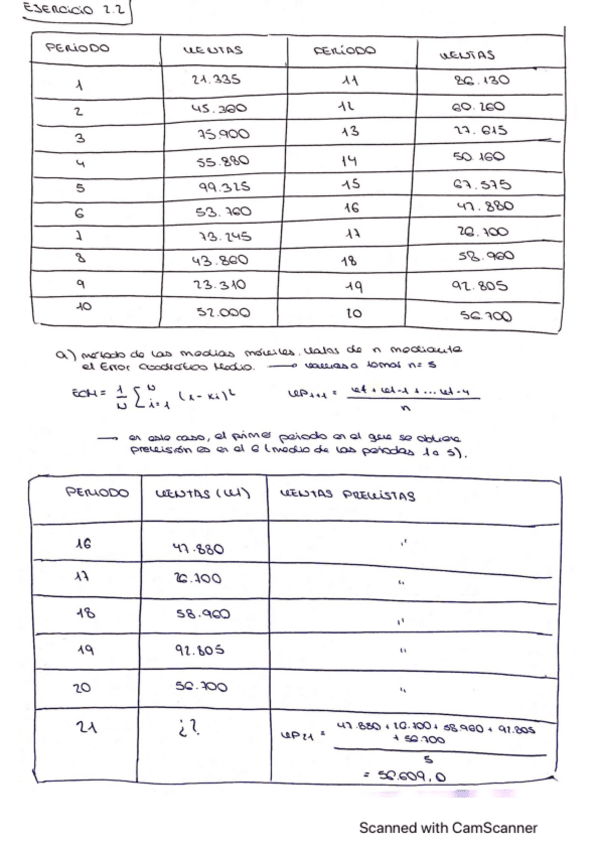 EJERCICIO 2.2
PERÍODO VENTAS PERÍODO VENTAS
1 21.335 11 86.130
2 45.360 12 60.260
3 75.900 13 27.615
4 55.880 14 50.160
5 99.325 15 67.575
6 53.760 16 47.880
7 73.245 17 26.700
8 43.860 18 58.960
9 23.310 19 92.805
10 52.000 20 56.700
a) método de las medias móviles. Valor de n mediante
el Error Cuadrático Medio. → vamos a tomar n= 5
ECM = 1/N ∑ᵢ₌₁ᴺ (x-xi)² VPt+1 = Vt + Vt-1 + ... Vt-4 / n
→ en este caso, el primer periodo en el que se obtiene
previsión es en el 6 (medio de los periodos 1 a 5).
PERIODO VENTAS (Vt) VENTAS PREVISTAS
16 47.880 "
17 26.700 "
18 58.960 "
19 92.805 "
20 56.700 "
21 ¿? VP21 = 47.880 + 26.700 + 58.960 + 92.805
+ 56.700
5
= 56.609,0
Scanned with CamScanner